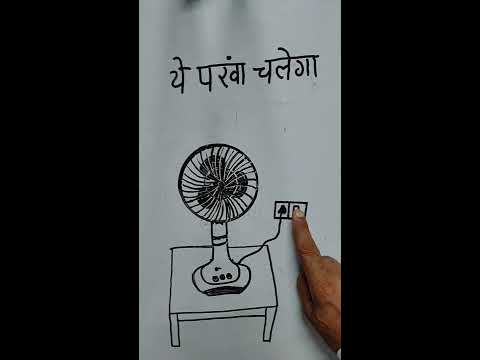 ये परवां चलेगा